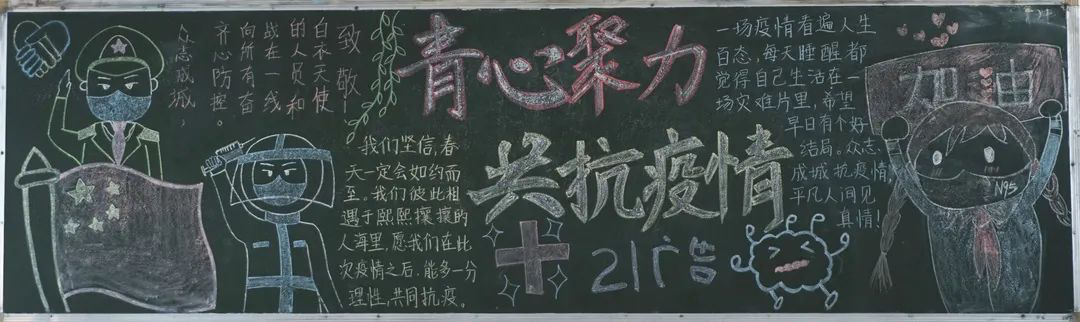 众志成城,
齐心防控。
向所有奋
战在一线
的人员和
白衣天使
致敬!
青心聚力
共抗疫情
21广告
我们坚信,春
天一定会如约而
至。我们彼此相
遇于熙熙攘攘的
人海里,愿我们在此
次疫情之后,能多一分
理性,共同抗疫。
一场疫情看遍人生
百态,每天睡醒都
觉得自己生活在一
场灾难片里,希望
早日有个好
结局。众志
成城抗疫情,
平凡人间见
真情!
加油
N95